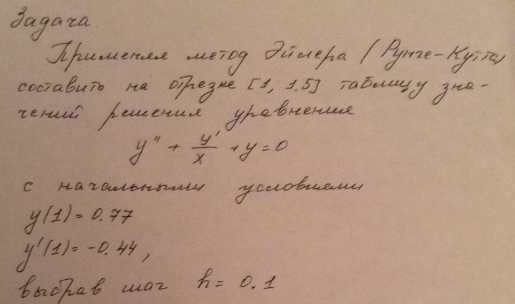 Задача.
Применяя метод Эйлера (Рунге-Кутта)
составить на отрезке [1; 1.5] таблицу зна-
чений решения уравнения
y'' + y'/x + y = 0
с начальными условиями
y(1) = 0.77
y'(1) = -0.44,
выбрав шаг h = 0.1